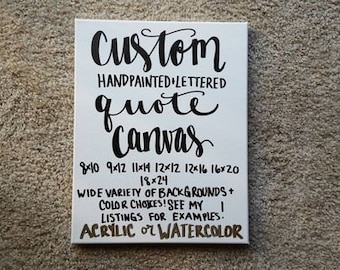 custom
HANDPAINTED+LETTERED
quote
canvas
8x10 9x12 11x14 12x12 12x16 16x20
18x24
WIDE VARIETY OF BACKGROUNDS +
COLOR CHOICES! SEE MY
LISTINGS FOR EXAMPLES!
ACRYLIC or WATERCOLOR